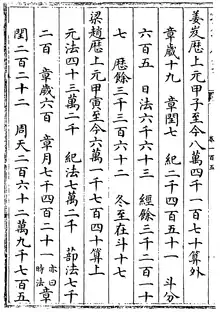 姜岌歷上元甲子至今八萬四千一百八十算外
章歲十九　章閏七　紀二千四百五十一　斗分
六百五　日法六千六十三　經餘三千二百一十
七　歷餘三千三百六十二　冬至在斗十七
梁趙歷上元甲寅至今六萬一千七百四十算上
元法四十三萬二千　紀法七萬二千　蔀法七千
二百　章歲六百　章月七千四百二十一亦曰時法　章
閏二百二十二　周天二百六十二萬九千七百五